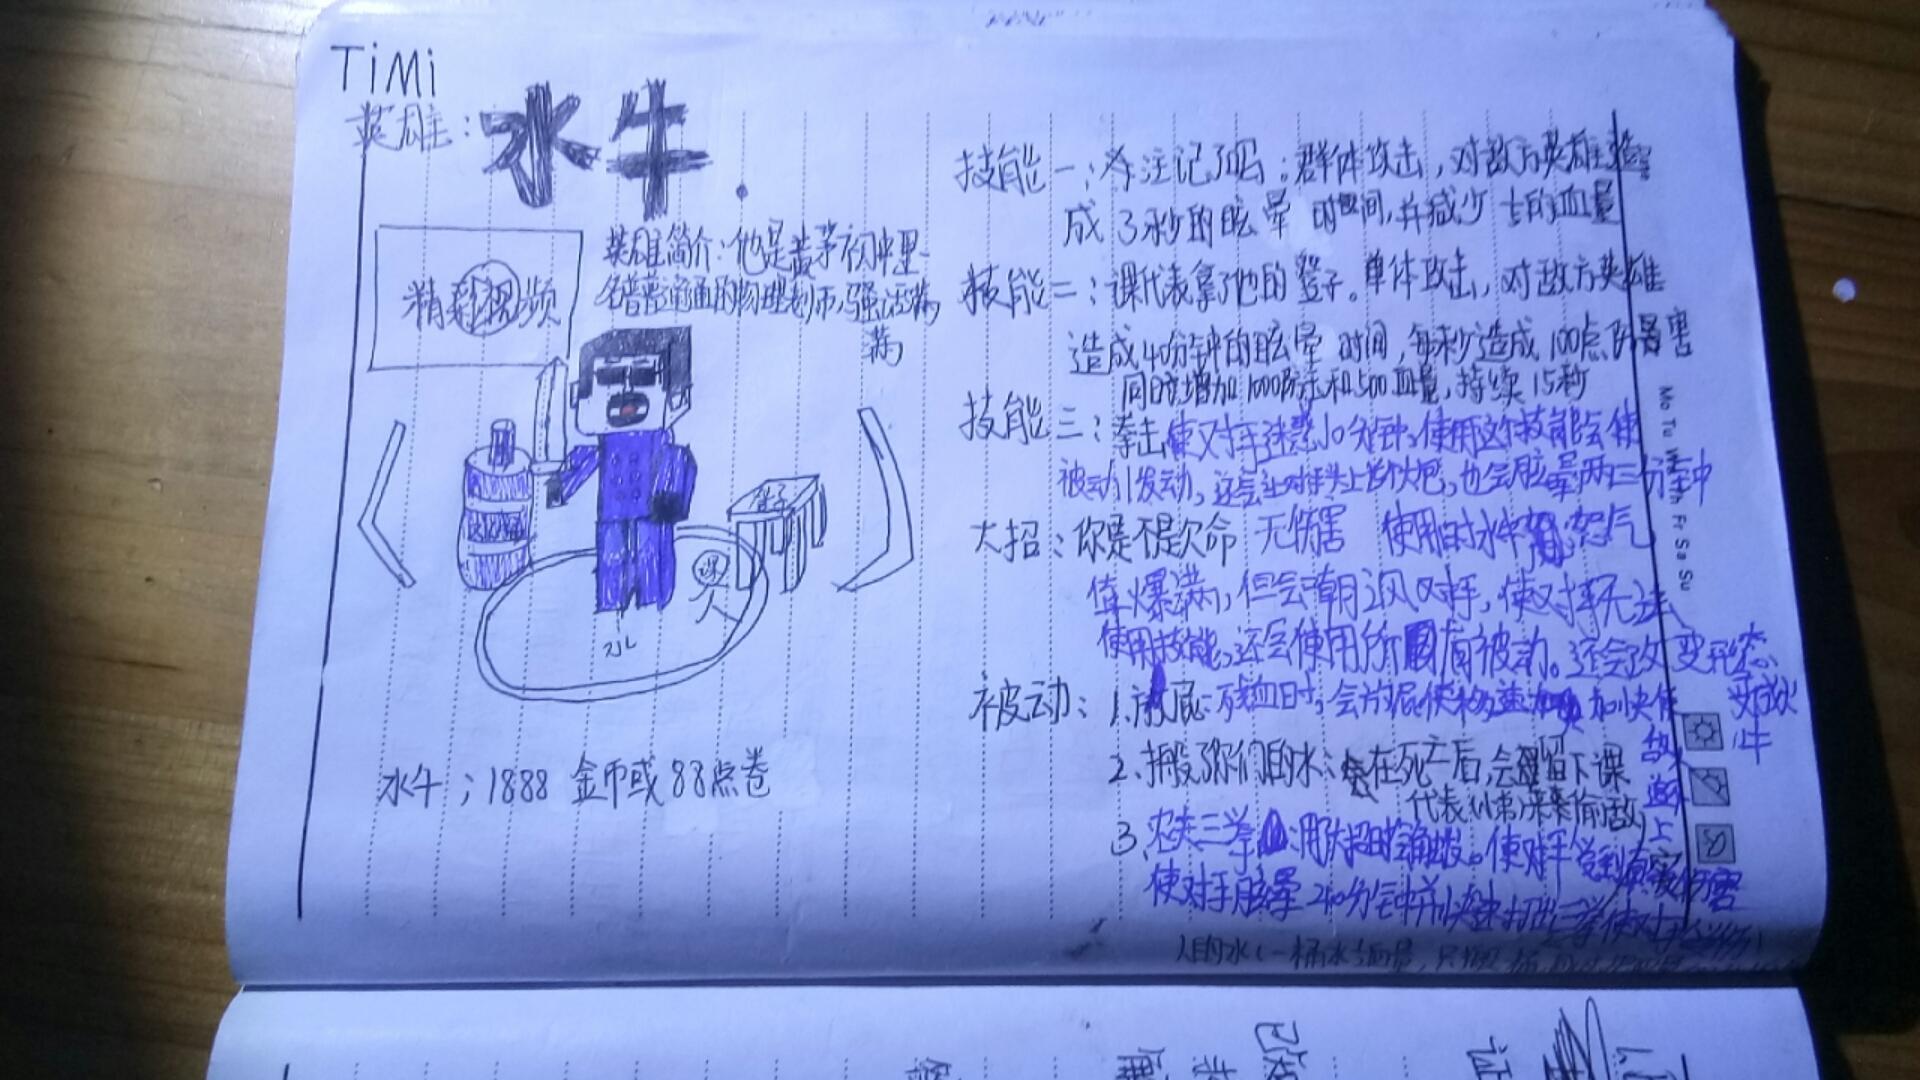 TiMi
英雄：水牛
精彩视频
英雄简介：他是黄茅初中里一
名普普通通的物理老师，骚话满
满
火水罐
凳子
课
水
水牛；1888 金币或 88点卷
技能一；关注记了吗：群体攻击，对敌方英雄造
成 3 秒的眩晕 时间，并减少 的血量
技能二；课代表拿了他的凳子。单体攻击，对敌方英雄
造成40分钟的眩晕 时间，每秒造成 100点 伤害
同时增加1000防击和500血量，持续 15秒
技能三：拳击使对手迷惑10分钟，使用这个技能会使
被动1发动，还会让对手头上 个大包，也会眩晕两三分钟
大招：你是不是欠命 无伤害 使用时水牛 怒气
值爆满，但会嘲讽对手，使对手无法
使用技能，还会使用所有被动。还会改变形态
被动：1.放屁：残血时，会放屁使移速 加快使
变成水牛
敌
2.搬了你们的水：会在死亡后，会遗留下课
代表
追
上
3.农夫三拳：用大招时会触发。使对手受到真实伤害
使对手眩晕240分钟并快速打出三拳使对手
人的水（一桶水
Mo Tu We Th Fr Sa Su